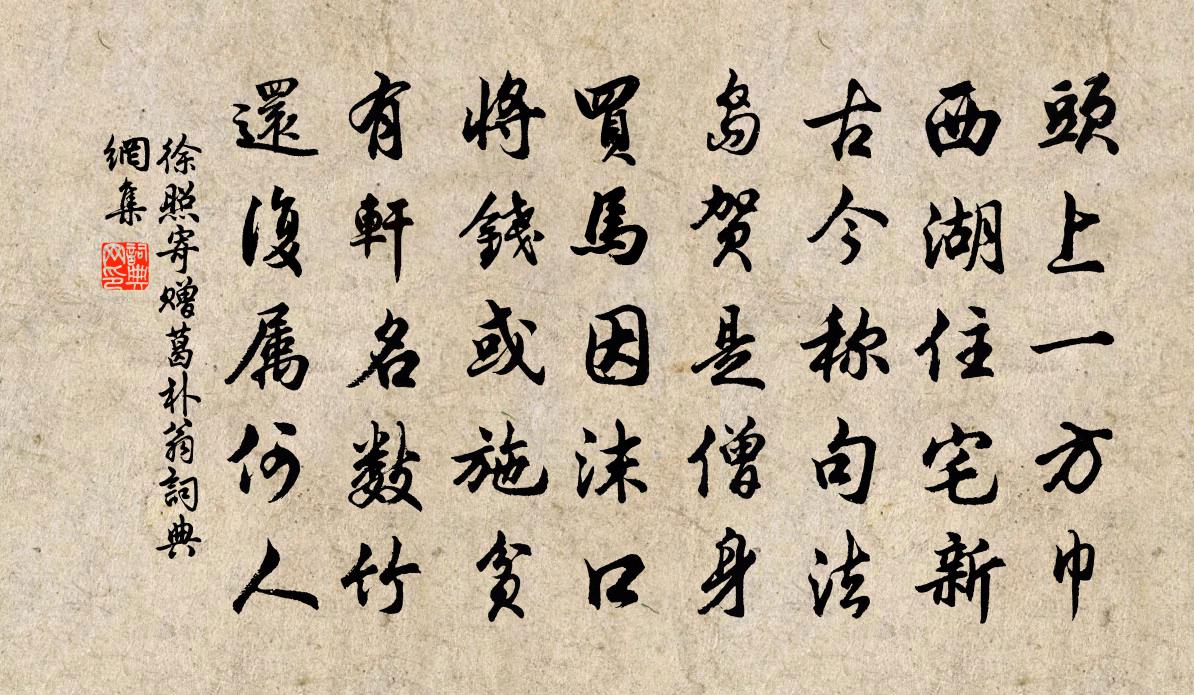 頭上一方巾
西湖住宅新
古今称句法
島賀是僧身
買馬因沫口
將錢或施貧
有軒名數竹
還復属何人
徐照寄贈葛朴翁詞典
網集
詞典网印